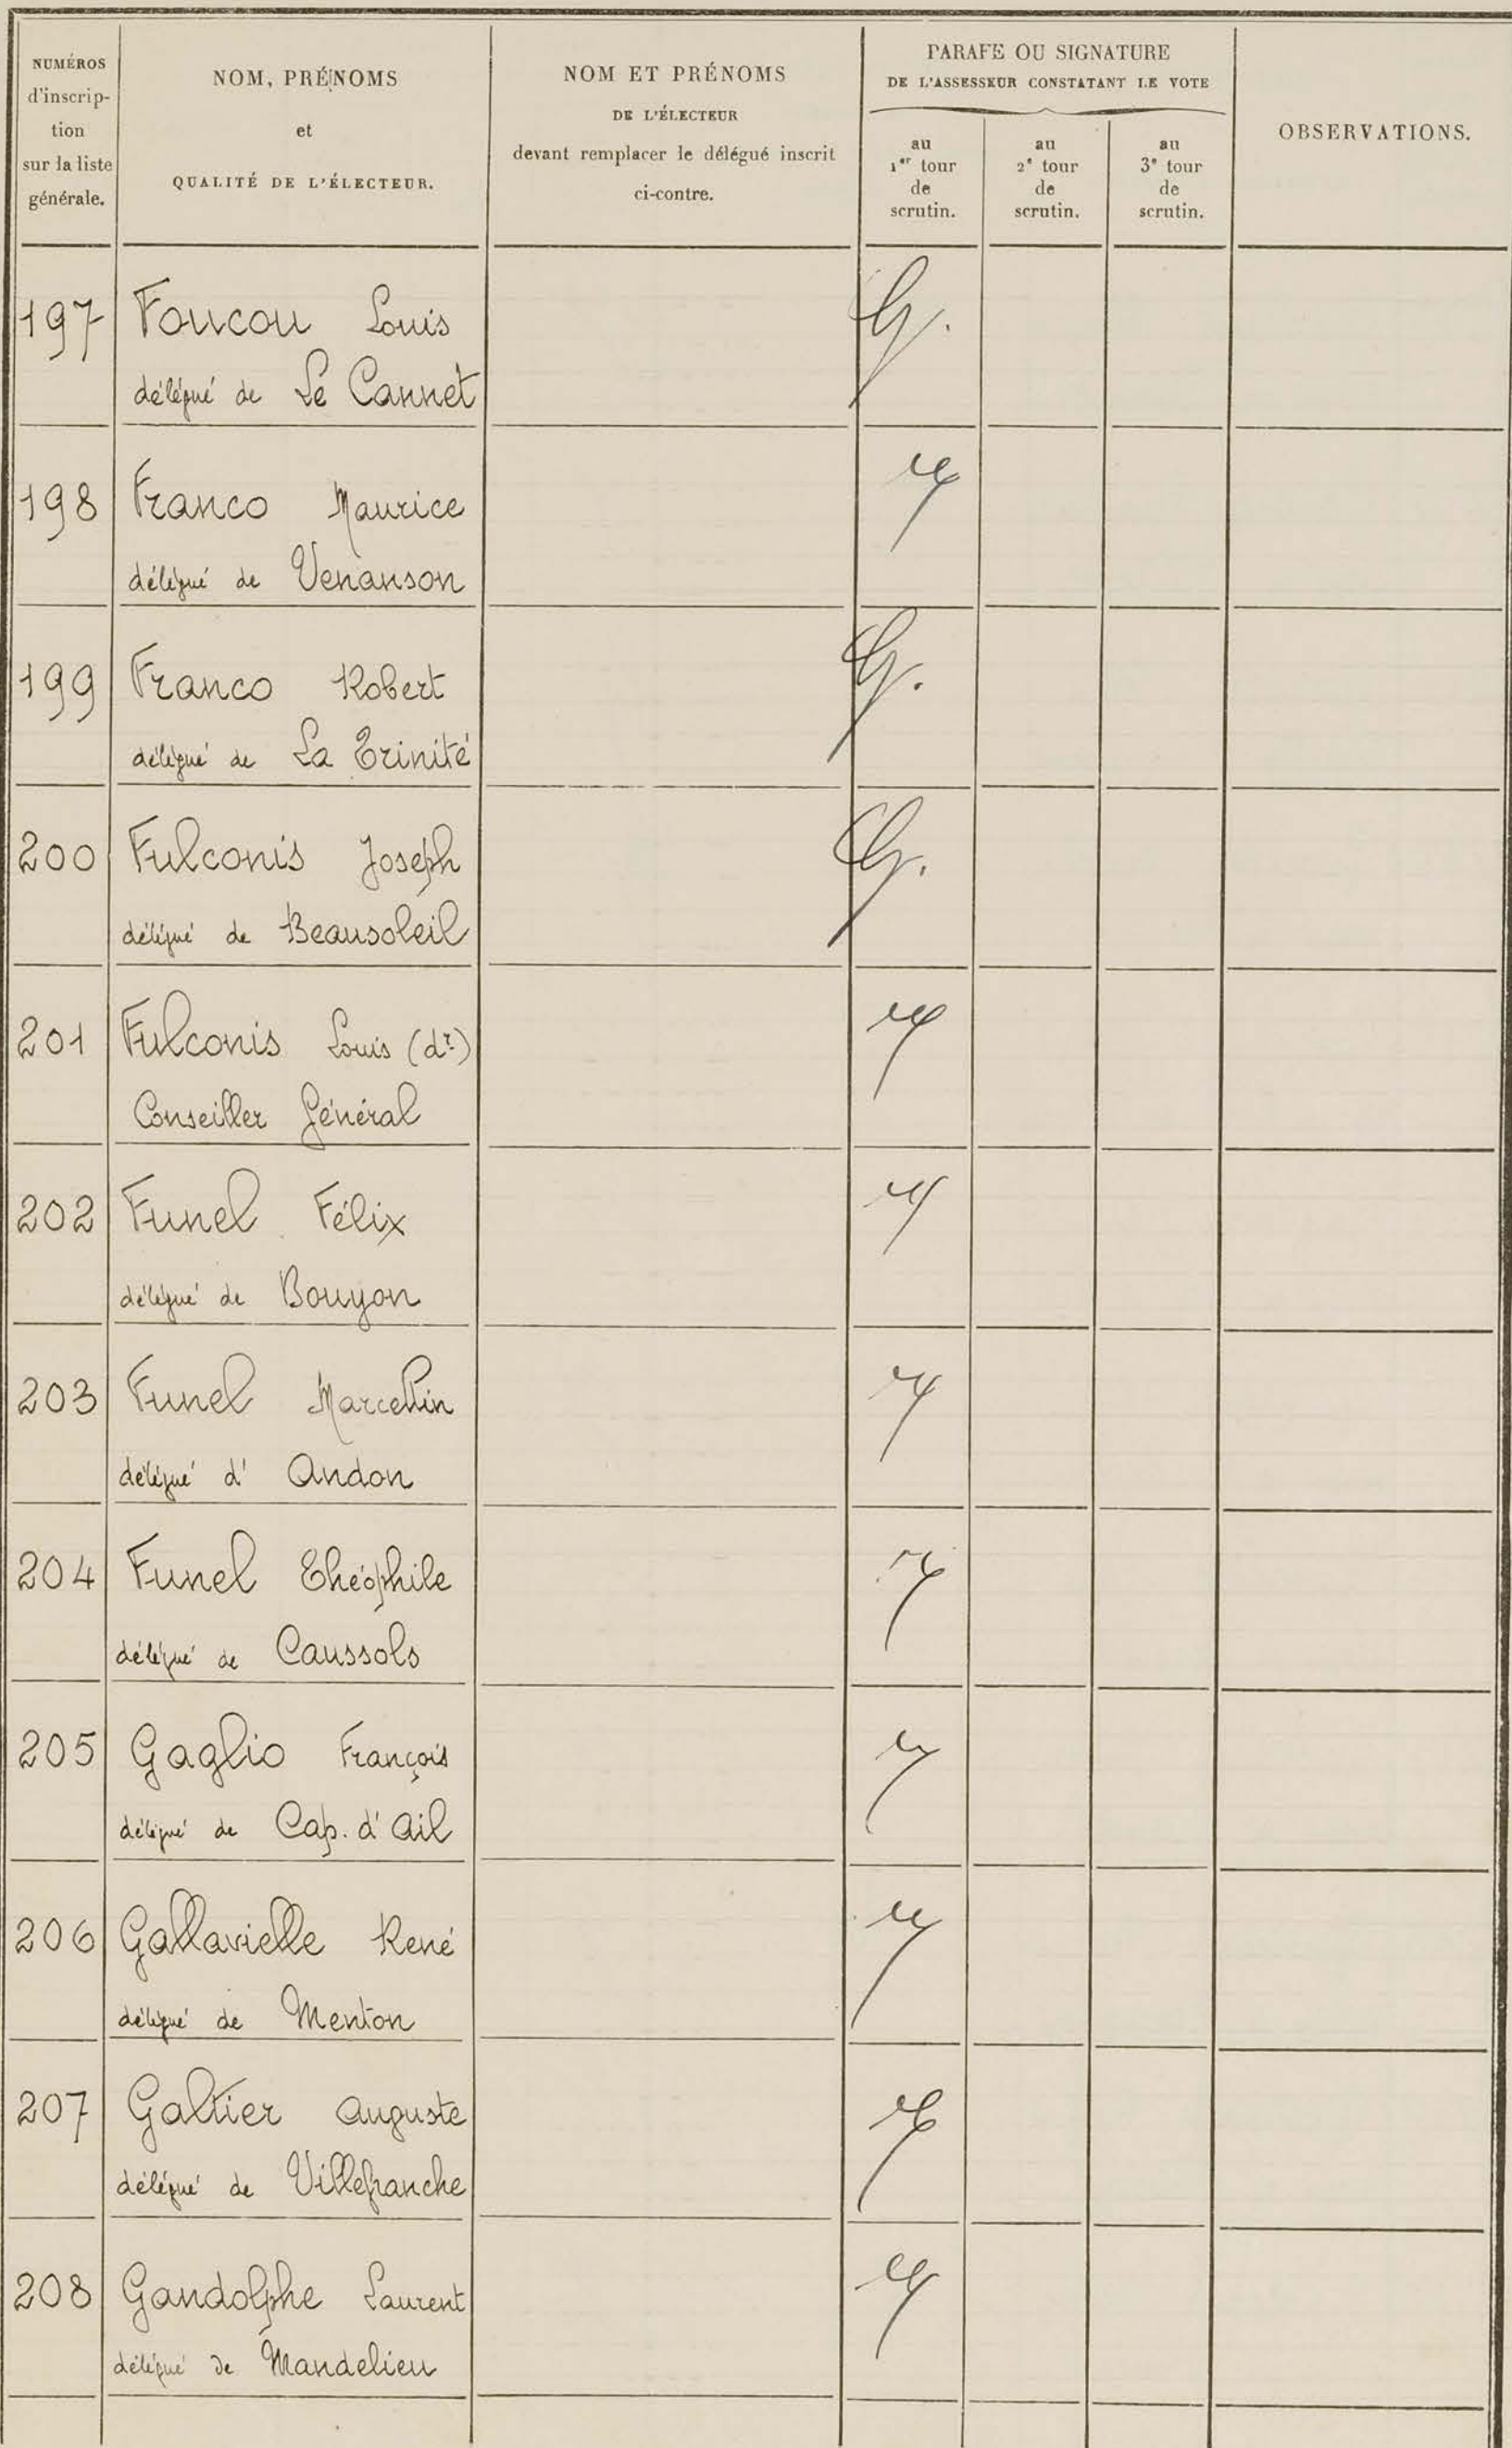 NUMÉROS
d'inscrip-
tion
sur la liste
générale.
NOM, PRÉNOMS
et
QUALITÉ DE L'ÉLECTEUR.
NOM ET PRÉNOMS
DE L'ÉLECTEUR
devant remplacer le délégué inscrit
ci-contre.
PARAFE OU SIGNATURE
DE L'ASSESSEUR CONSTATANT LE VOTE
au
1er tour
de
scrutin.
au
2e tour
de
scrutin.
au
3e tour
de
scrutin.
OBSERVATIONS.
197 Foucou Louis
délégué de Le Cannet
198 Franco Maurice
délégué de Venanson
199 Franco Robert
délégué de La Trinité
200 Fulconis Joseph
délégué de Beausoleil
201 Fulconis Louis (dr)
Conseiller Général
202 Funel Félix
délégué de Bouyon
203 Funel Marcellin
délégué d' Andon
204 Funel Théophile
délégué de Caussols
205 Gaglio François
délégué de Cap. d'Ail
206 Gallavielle René
délégué de Menton
207 Galtier Auguste
délégué de Villefranche
208 Gandolphe Laurent
délégué de Mandelieu